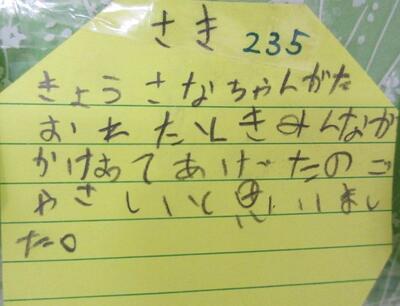 さき 235
きょうさなちゃんがた
おれたときみんなが
かけあてあげたのご
やさしいと思いまし
た。